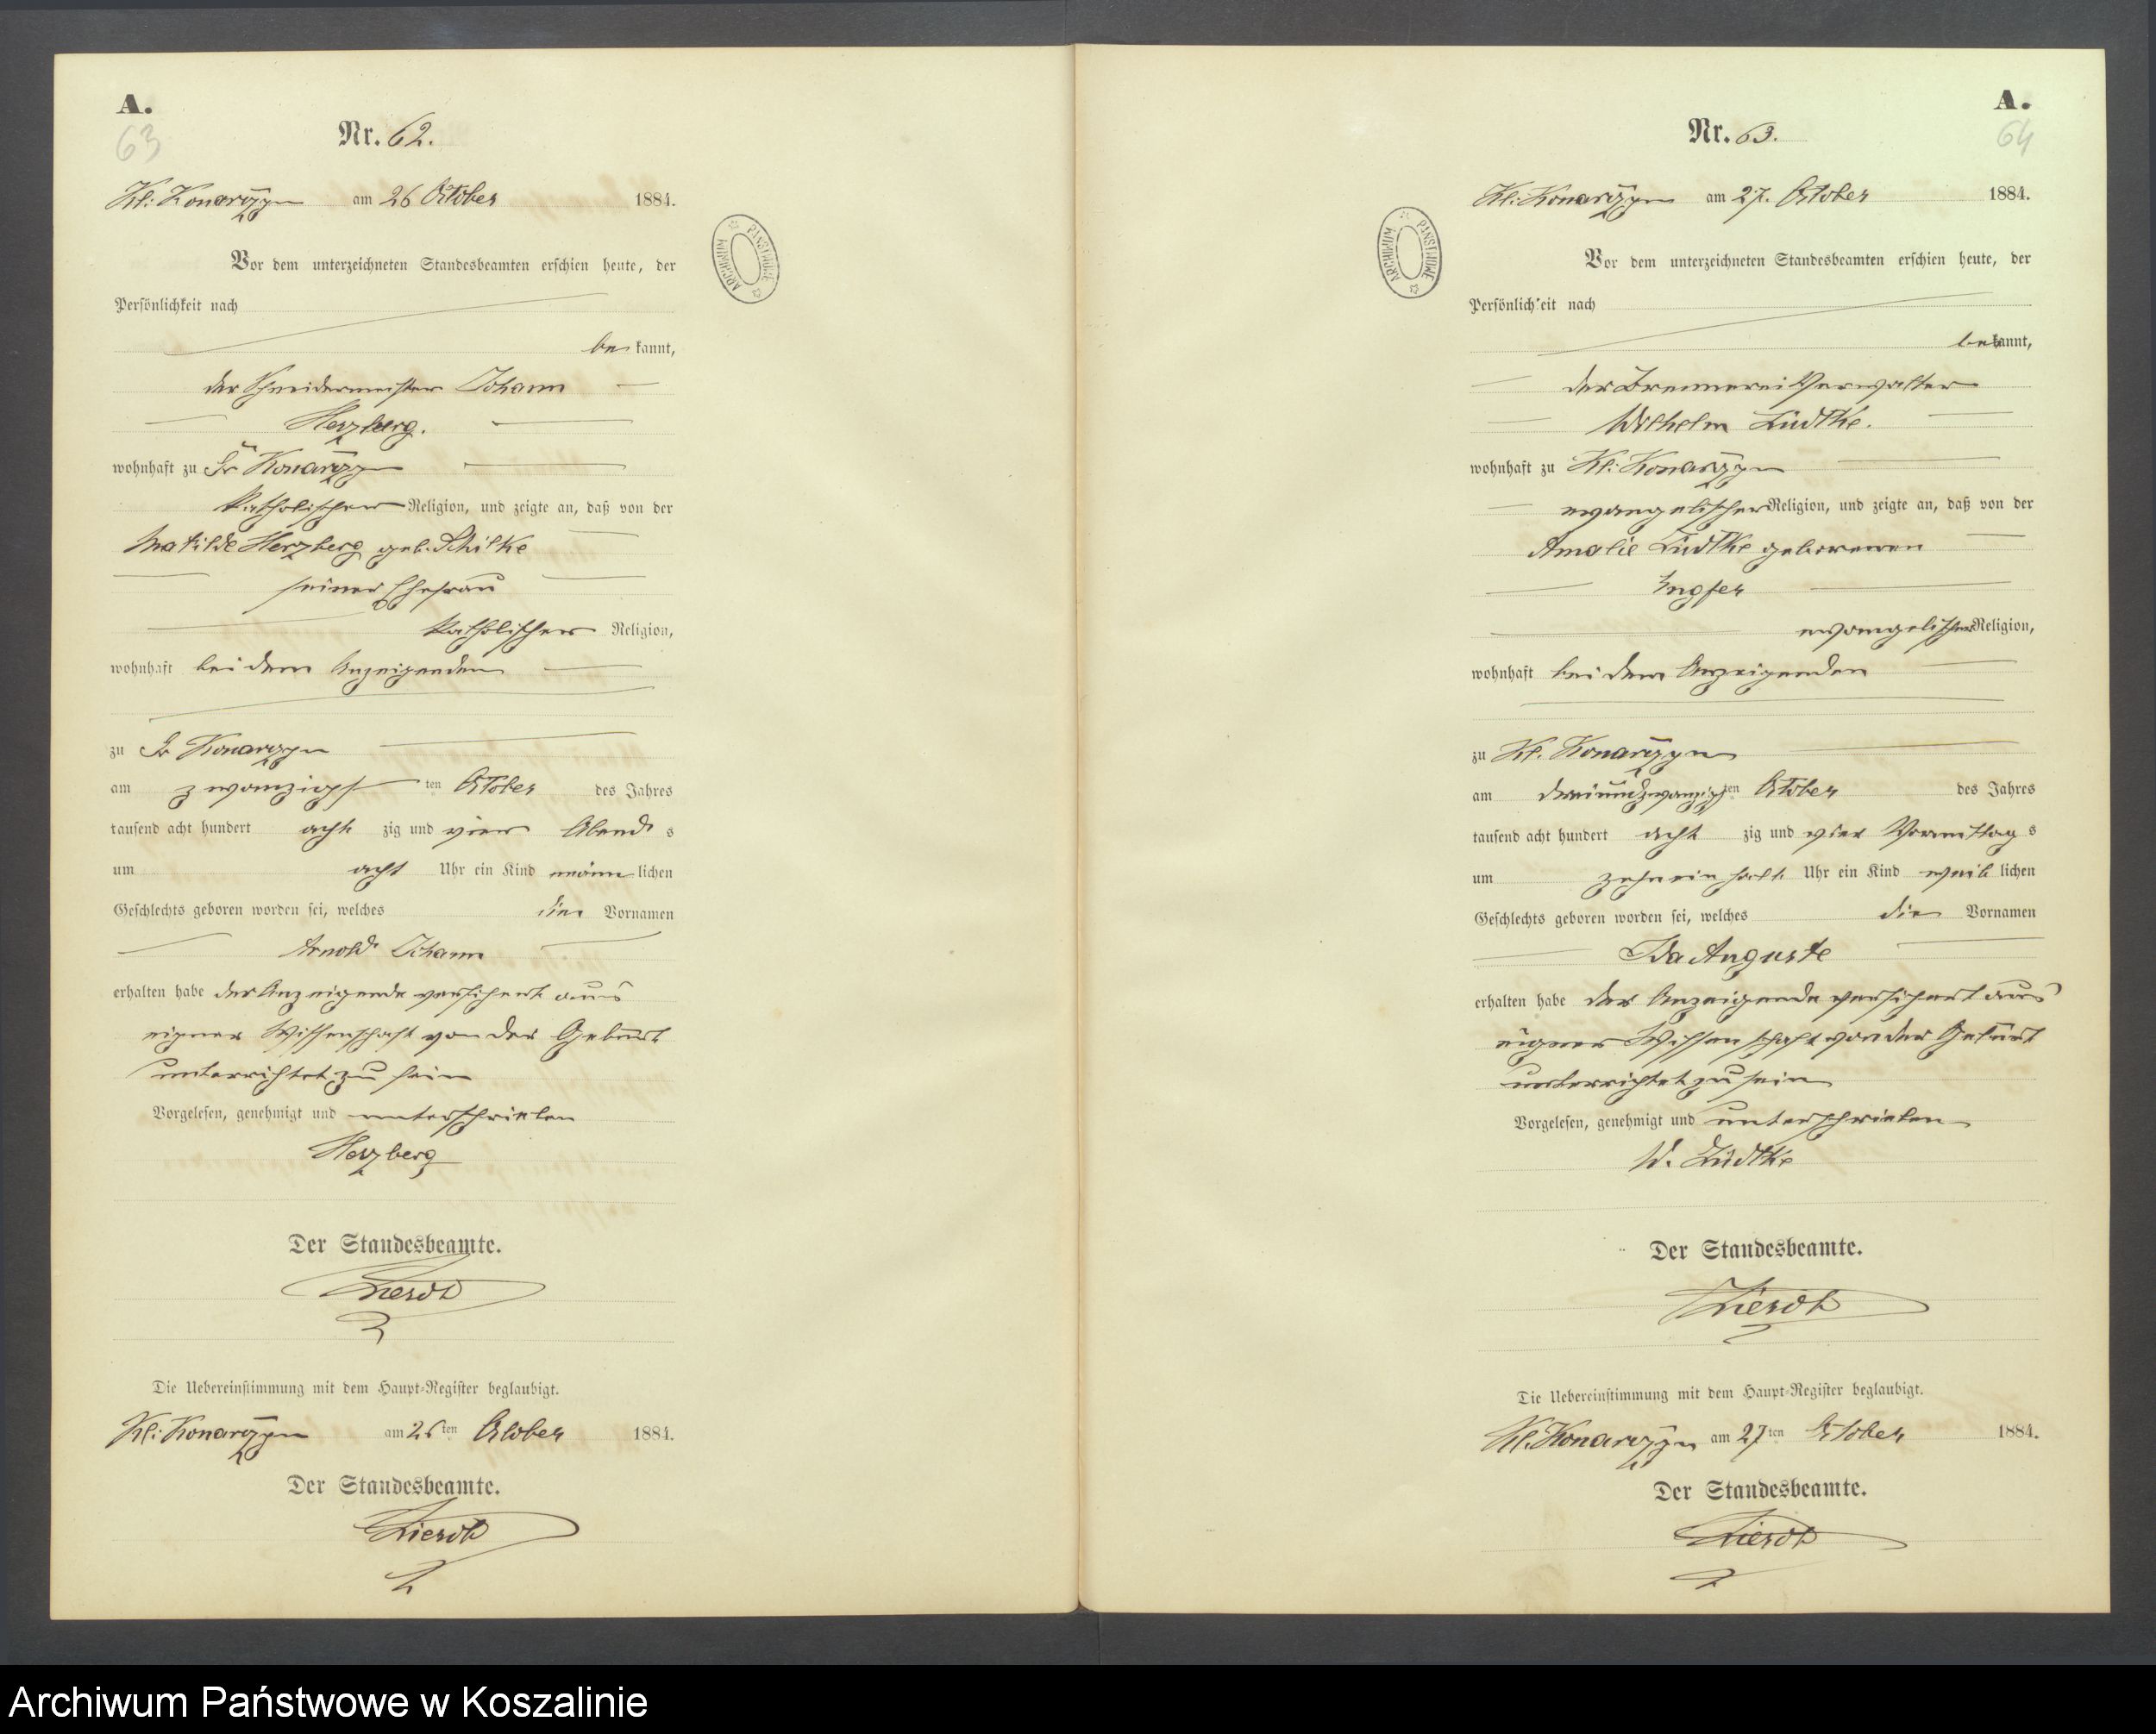 A.
63
Nr. 62.
Kl: Konarczyn am 26 October 1884.
Vor dem unterzeichneten Standesbeamten erschien heute, der
Persönlichkeit nach
be kannt,
der Schneidermeister Johann
Herzberg.
wohnhaft zu Gr Konarczyn
katholischer Religion, und zeigte an, daß von der
Matilde Herzberg geb. Schilke
seiner Ehefrau
katholischer Religion,
wohnhaft bei dem Anzeigenden
zu Gr Konarczyn
am zwanzigst ten October des Jahres
tausend acht hundert acht zig und vier Abend s
um acht Uhr ein Kind männ lichen
Geschlechts geboren worden sei, welches die Vornamen
Arnold Johann
erhalten habe der Anzeigende versichert aus
eigner Wissenschaft von der Geburt
unterrichtet zu sein
Vorgelesen, genehmigt und unterschrieben
Herzberg
Der Standesbeamte.
Die Uebereinstimmung mit dem Haupt-Register beglaubigt.
Kl: Konarczyn am 26 ten October 1884.
Der Standesbeamte.
ARCHIWUM PAŃSTWOWE
A.
64
Nr. 63.
Kl: Konarczyn am 27. October 1884.
Vor dem unterzeichneten Standesbeamten erschien heute, der
Persönlichkeit nach
bekannt,
der Brennerei Verwalter
Wilhelm Lüdtke.
wohnhaft zu Kl: Konarczyn
evangelischer Religion, und zeigte an, daß von der
Amalie Lüdtke geborenen
Ingfer
evangelischer Religion,
wohnhaft bei dem Anzeigenden
zu Kl. Konarczyn
am dreiundzwanzigsten October des Jahres
tausend acht hundert acht zig und vier Vormittag s
um zehn ein halb Uhr ein Kind weib lichen
Geschlechts geboren worden sei, welches die Vornamen
Ida Auguste
erhalten habe der Anzeigende versichert aus
eigner Wissenschaft von der Geburt
unterrichtet zu sein
Vorgelesen, genehmigt und unterschrieben
W. Lüdtke
Der Standesbeamte.
Die Uebereinstimmung mit dem Haupt-Register beglaubigt.
Kl. Konarczyn am 27 ten October 1884.
Der Standesbeamte.
ARCHIWUM PAŃSTWOWE
Archiwum Państwowe w Koszalinie